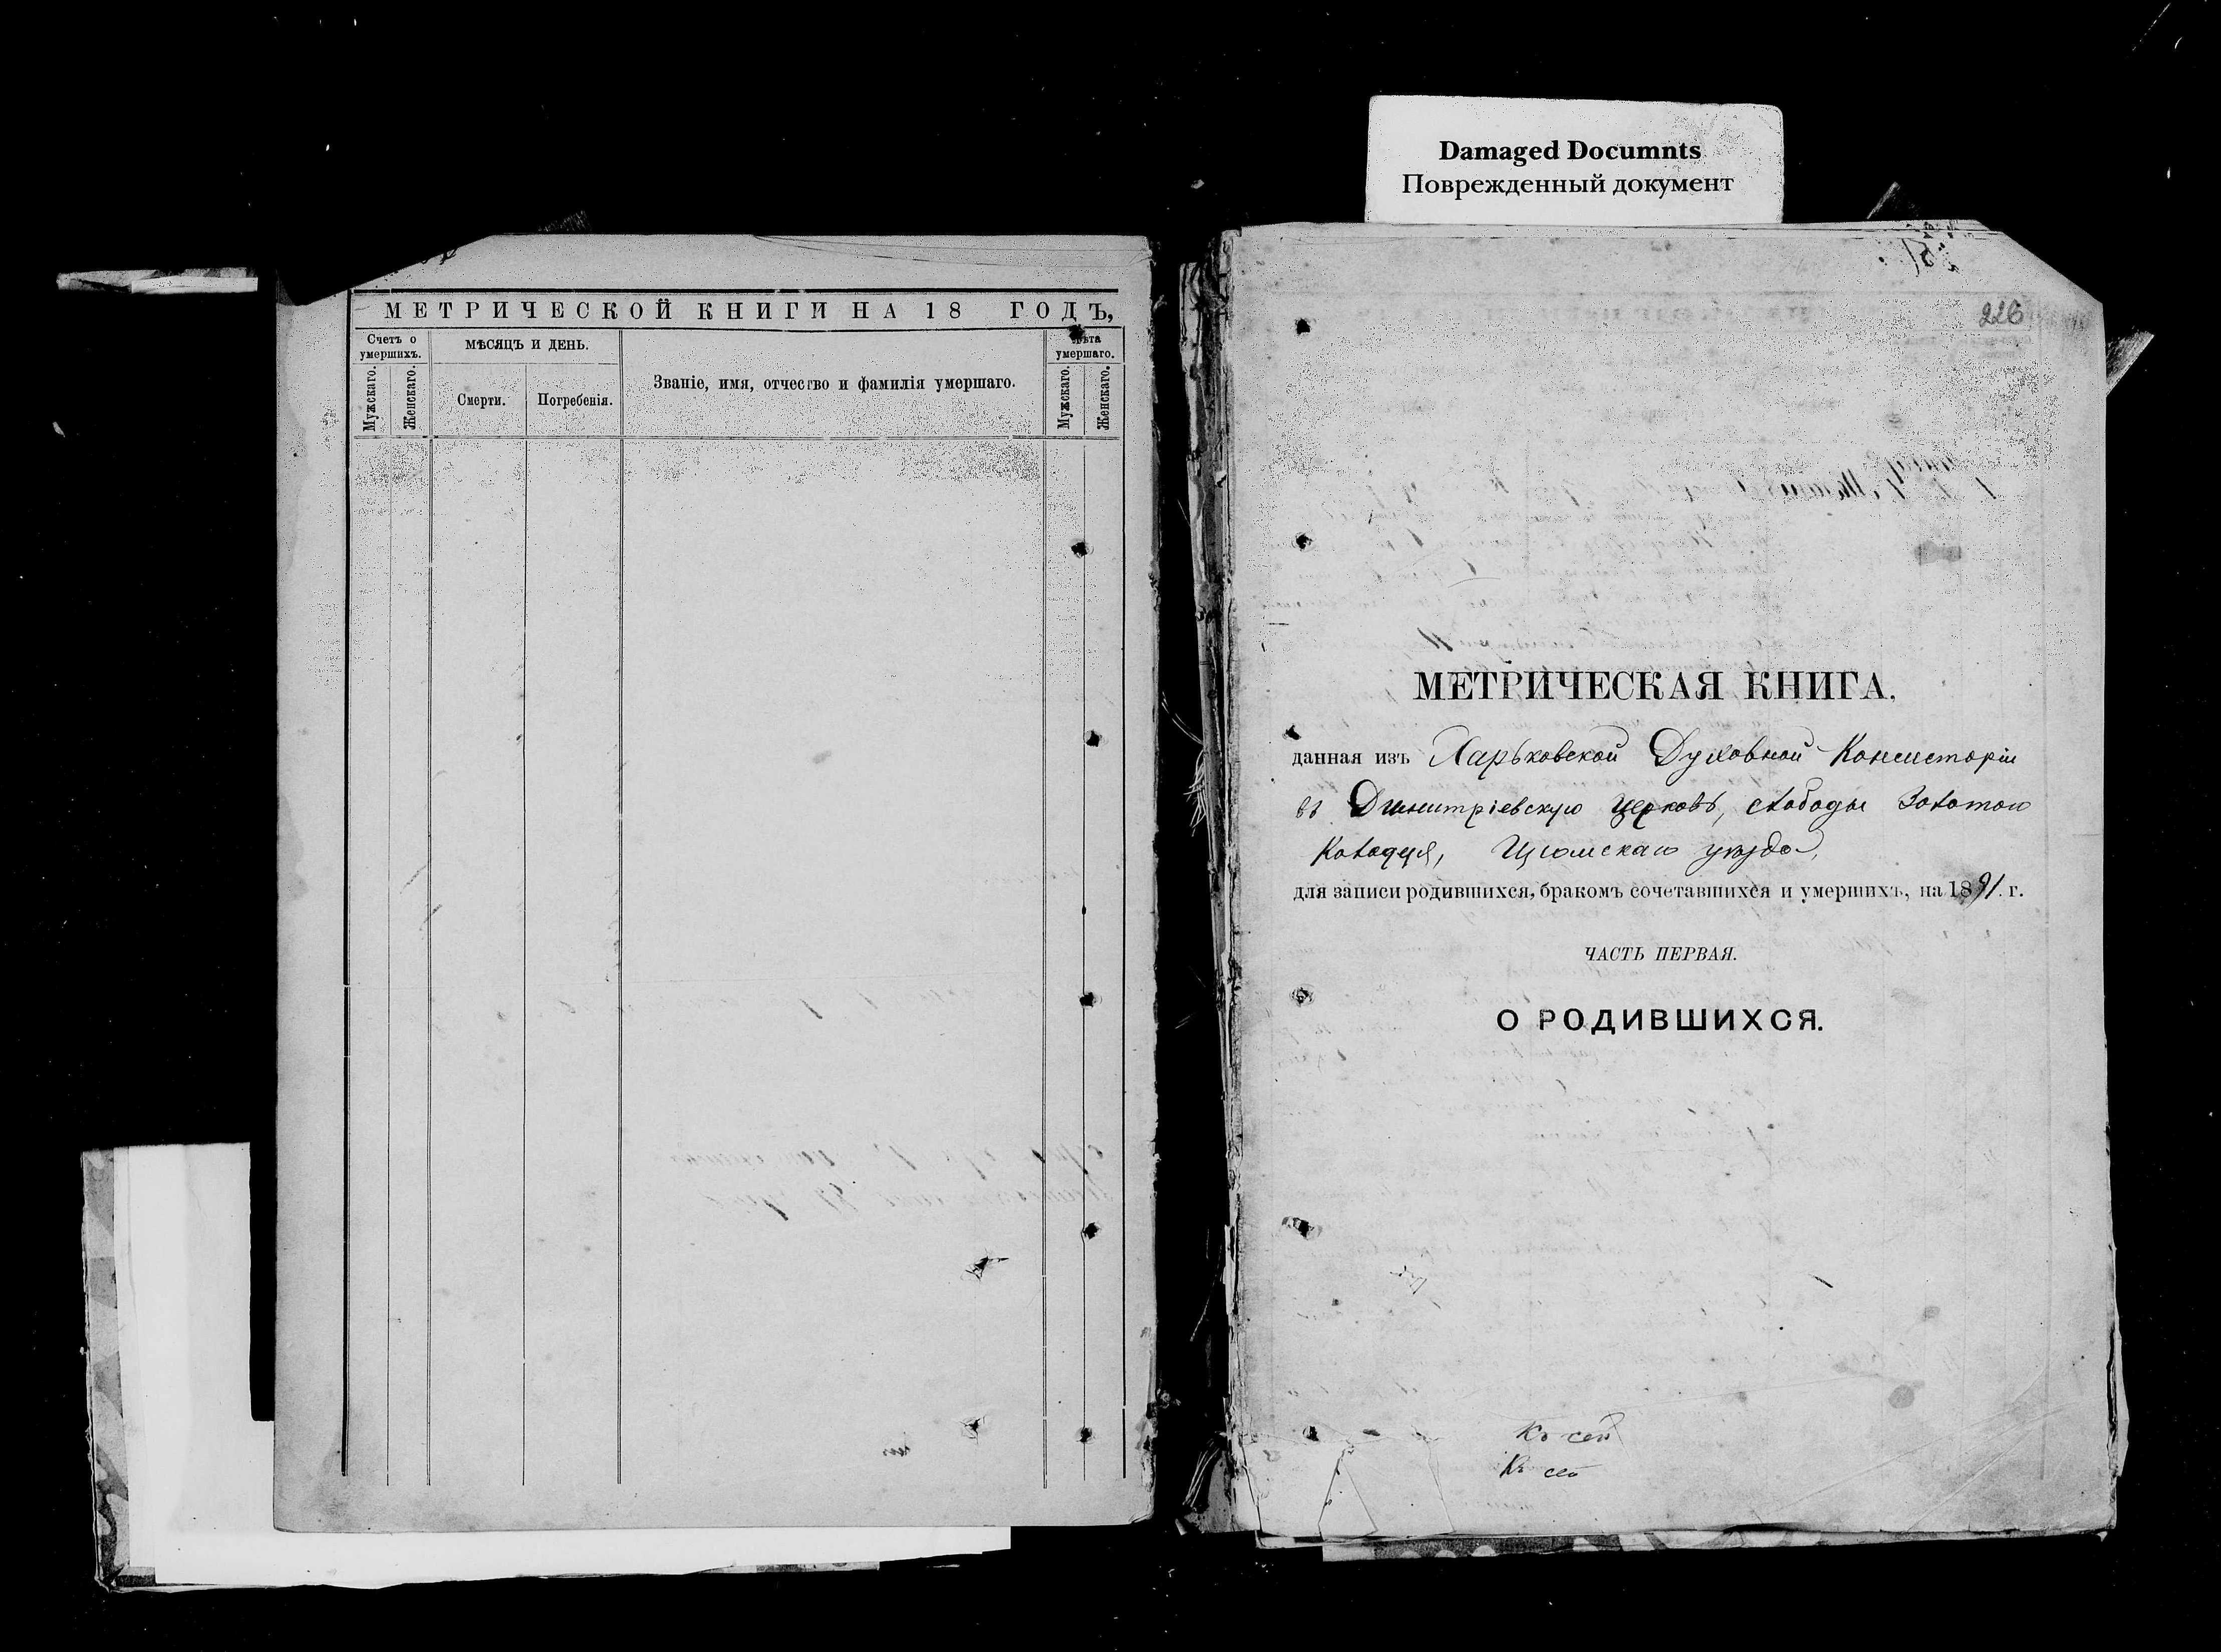 Damaged Documnts
Поврежденный документ
МЕТРИЧЕСКОЙ КНИГИ НА 18 ГОДЪ,
Счетъ о умершихъ.
Мужскаго.
Женскаго.
МѢСЯЦЪ И ДЕНЬ.
Смерти.
Погребенія.
Званіе, имя, отчество и фамилія умершаго.
Лѣта умершаго.
Мужскаго.
Женскаго.
226
МЕТРИЧЕСКАЯ КНИГА,
данная изъ Харьковской Духовной Консисторіи
въ Димитріевскую церковь, слободы Золотого
Колодезя, Изюмскаго уѣзда,
для записи родившихся, бракомъ сочетавшихся и умершихъ, на 1891. г.
ЧАСТЬ ПЕРВАЯ.
О РОДИВШИХСЯ.